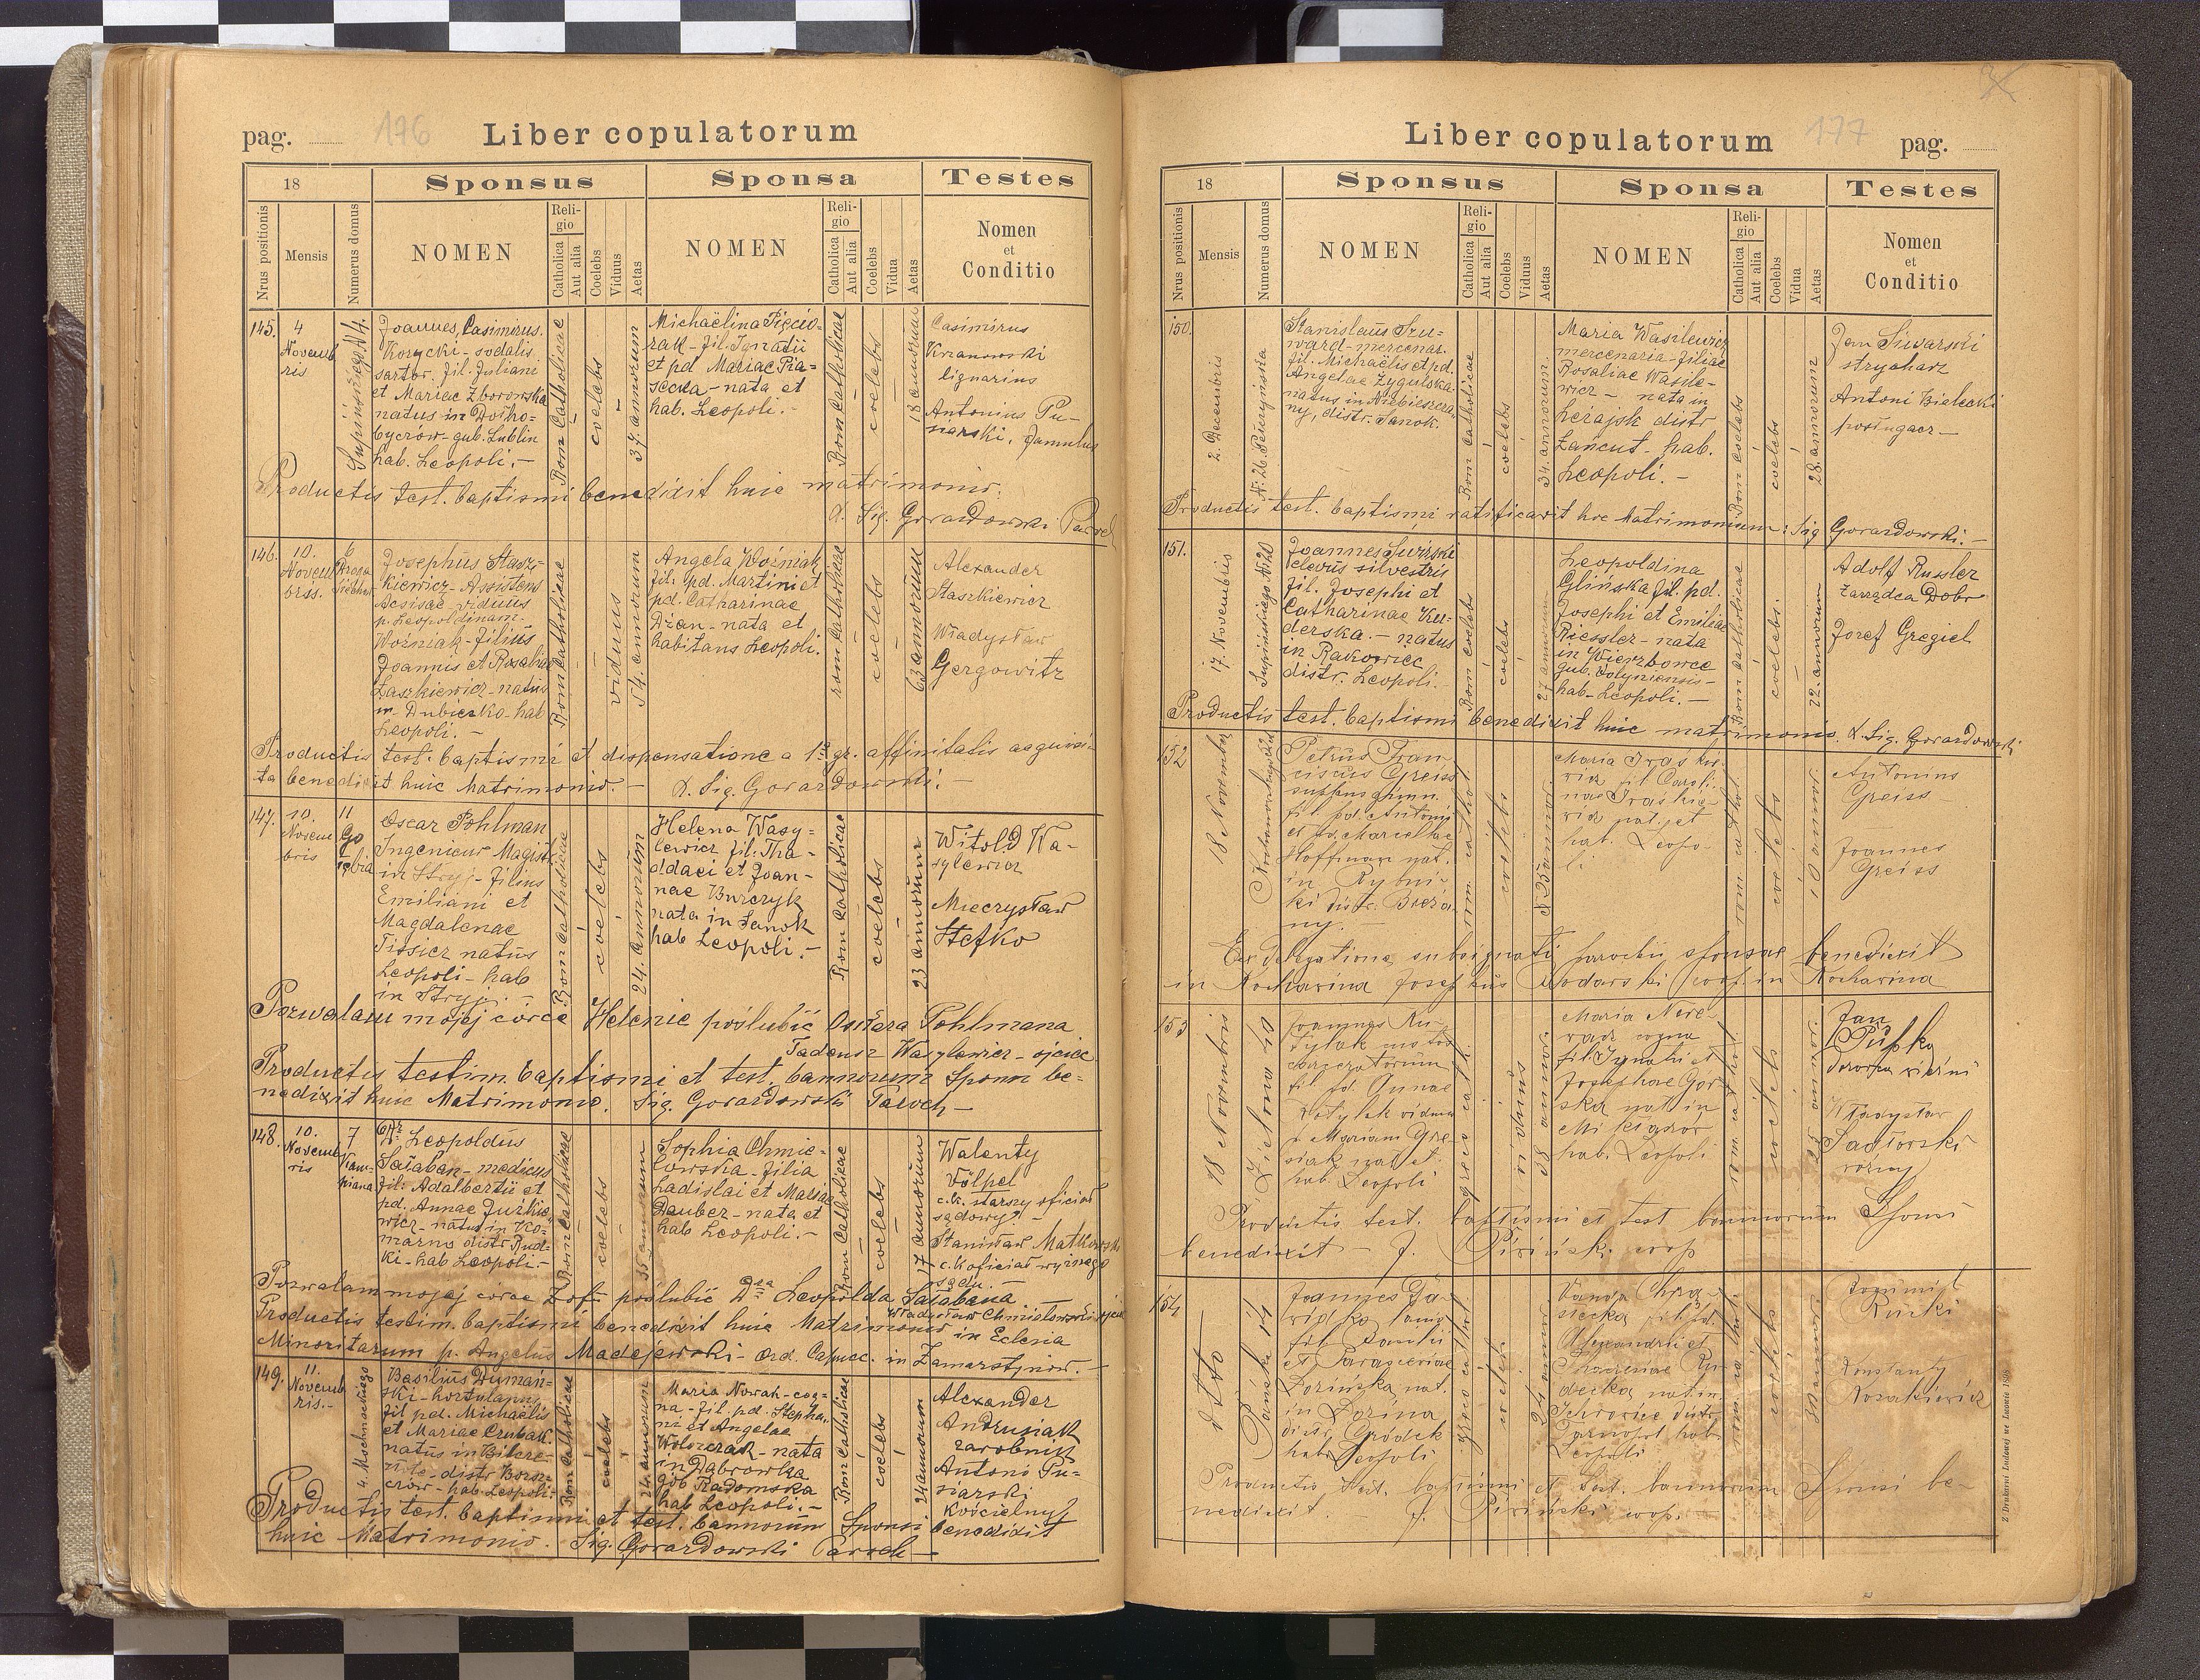 pag. 176 Liber copulatorum
18 Sponsus Sponsa Testes
Nrus positionis Mensis Numerus domus NOMEN Religio Catholica Aut alia Coelebs Viduus Aetas NOMEN Religio Catholica Aut alia Coelebs Vidua Aetas Nomen et Conditio
145.
4
Novemb
ris
Supińskiego N4.
Joannes, Casimirus.
Korycki - sodalis
sartor. fil. Juliani
et Mariae Zborowska
natus in Dołho-
byczów - gub. Lublin
hab. Leopoli. -
Rom Catholicae
coelebs
37 annorum
Michaëlina Pięcio-
rak - fil. Ignatii
et pd Mariae Pia-
secka - nata et
hab. Leopoli. -
Rom Catholicae
coelebs
18 annorum
Casimirus
Krzanowski
lignarius
Antonius Pu-
siarski, famulus
Productis test. baptismi benedixit huic matrimonio.
d. Sig. Gorazdowski Paroch
146.
10.
Novem
6
Josephus Stasz-
kiewicz - Assistens
viduus
p. Leopoldinam
Woźniak - filius
Joannis et Rosaliae
natus
in Dubiecko - hab
Leopoli. -
Rom Catholicae
viduus
54 annorum
Angela Woźniak
fil. pd. Martini et
pd. Catharinae
Dżan - nata et
habitans Leopoli.
rom catholicae
coelebs
63 annorum
Alexander
Staszkiewicz
Władysław
Gergowitz
Productis test. baptismi et dispensatione a 1º gr. affinitatis acquisi-
ta benedixit huic Matrimonio. - d. Sig. Gorazdowski. -
147.
10.
Novem
bris
11
Go
łębia
Oscar Pohlman
Ingenieur Magist
in Stryj - filius
Emiliani et
Magdalenae
Tissier natus
Leopoli - hab
in Stryj. -
Rom Catholicae
coelebs
24. annorum
Helena Wasy-
lewicz fil. Tha-
ddaei et Joan-
nae Burczyk
nata in Sanok
hab Leopoli. -
Rom Catholicae
coelebs
23 annorum
Witold Wa-
sylewicz
Mieczysław
Stefko
Pozwalam mojej córce Helenie poślubić Oskara Pohlmana
Tadeusz Wasylewicz - ojciec
Productis testim. baptismi et test. bannorum Sponsi be-
nedixit huic Matrimonio. Sig. Gorazdowski Paroch -
148.
10.
Novemb
ris
7
Dr Leopoldus
Sałaban - medicus
fil. Adalbertii et
pd. Annae Juźkie
wicz - natus in Ko-
marno distr Rud-
ki - hab Leopoli -
Rom Catholicae
coelebs
35 annorum
Sophia Chmie-
lowska - filia
Ladislai et Mariae
Dauber - nata et
hab Leopoli. -
Rom Catholicae
coelebs
17 annorum
Walenty
Völpel
c.k. starszy oficiał
sądowy. -
Stanisław Matkowski
c.k oficiał wyższego
sądu. -
Pozwalam mojej córce Zofii poślubić Dra Leopolda Sałabana
Władysław Chmielowski ojciec
Productis testim. baptismi benedixit huic Matrimonio in Eclesia
Minoritarum p. Angelus Madejewski - Ord. Capucc. in Zamarstynów. -
149.
11.
Novemb
ris. -
Basilius Duman-
ski - hortulanus
fil pd. Michaëlis
et Mariae Czubak.
natus in Bilcze
distr Borsz-
czów - hab. Leopoli.
Rom Catholicae
coelebs
24 annorum
Maria Nowak - coq-
na - fil. pd. Stepha-
ni et Angelae
Wołoczak - nata
in Dąbrowka
gub Radomska
hab Leopoli. -
Rom Catholicae
coelebs
24 annorum
Alexander
Andrusiak
zarobnik
Antoni Pu-
siarski
kościelny
Productis test. baptismi et test. bannorum Sponsi benedixit
huic Matrimonio. Sig. Gorazdowski Paroch -
Liber copulatorum 177 pag.
18 Sponsus Sponsa Testes
Nrus positionis Mensis Numerus domus NOMEN Religio Catholica Aut alia Coelebs Viduus Aetas NOMEN Religio Catholica Aut alia Coelebs Vidua Aetas Nomen et Conditio
150.
2. Decembris
Stanislaus Szu-
ward - mercenar.
fil. Michaëlis et pd.
Angelae Żygulska
natus in Niebieszcza-
ny, distr. Sanok.
Rom Catholicae
coelebs
34. annorum.
Maria Wasilewicz
mercenaria - filiae
Rosaliae Wasile-
wicz - nata in
Leżajsk distr
Łańcut - hab.
Leopoli. -
coelebs
28. annorum
Jan Siwarski
strycharz
Antoni Bielecki
posługacz -
Productis test. baptismi ratificavit hoc Matrimonium: Sig Gorazdowski. -
151.
17. Novembris
Supińskiego N. 20
Joannes Świrski
silvestris
fil. Josephi et
Catharinae Ku-
derska. - natus
in Rakowiec
distr. Leopoli. -
coelebs
27 annorum
Leopoldina
Glińska fil. pd.
Josephi et Emiliae
Riessler - nata
in Wierzbowce
gub. Wołyniensis -
hab - Leopoli. -
Rom Catholicae
coelebs.
22. annorum
Adolf Russler
Zarządca Dobr
Jozef Gregiel.
Productis test. baptismi benedixit huic matrimonio. d. Sig. Gorazdowski
152
18 Novembris
Petrus Fran-
ciscus Greiss
fil. pd. Antoni
et pd. Marcellae
Hoffman nat.
in Rybni-
ki distr. Brzeża-
ny.
rom cathol.
coelebs
Maria
hab. Leopo-
li
rom cathol.
coelebs
Antonius
Greiss
Joannes
Greiss
Ex delegatione subsignati parochi sponsae benedixit
in Kocharina Josephus Wodarski coop. in Kocharina
153
18 Novembris
Zielona 40
Joannes Ku-
tylak
fil pd. Annae
Kutylak viduus
p. Mariam
nat et.
hab. Leopoli
greco cath.
viduus
38 annor.
Maria
fil Ignatii et
Josephae Gór-
ska nat in
hab. Leopoli
rom cathol
coelebs
Jan
Pupka
Władysław
Sadlowski
woźny
Productis test. baptismi et test bannorum Sponsi
benedixit - J. Piriński coop
154
Pańska 14
Joannes Ga-
fil Pauli
et Parasceviae
Dorińska nat.
in Dorina
distr. Gródek
hab Leopoli
greco cathol.
coelebs
Vanda
Alexandri et
nat in
distr.
Tarnopol hab
Leopoli
coelebs
Rucki
Konstanty
Kozakiewicz
Productis test. baptismi et test. bannorum Sponsi be-
nedixit. J. Piriński coop.
Z Drukarni Ludowej we Lwowie 1898